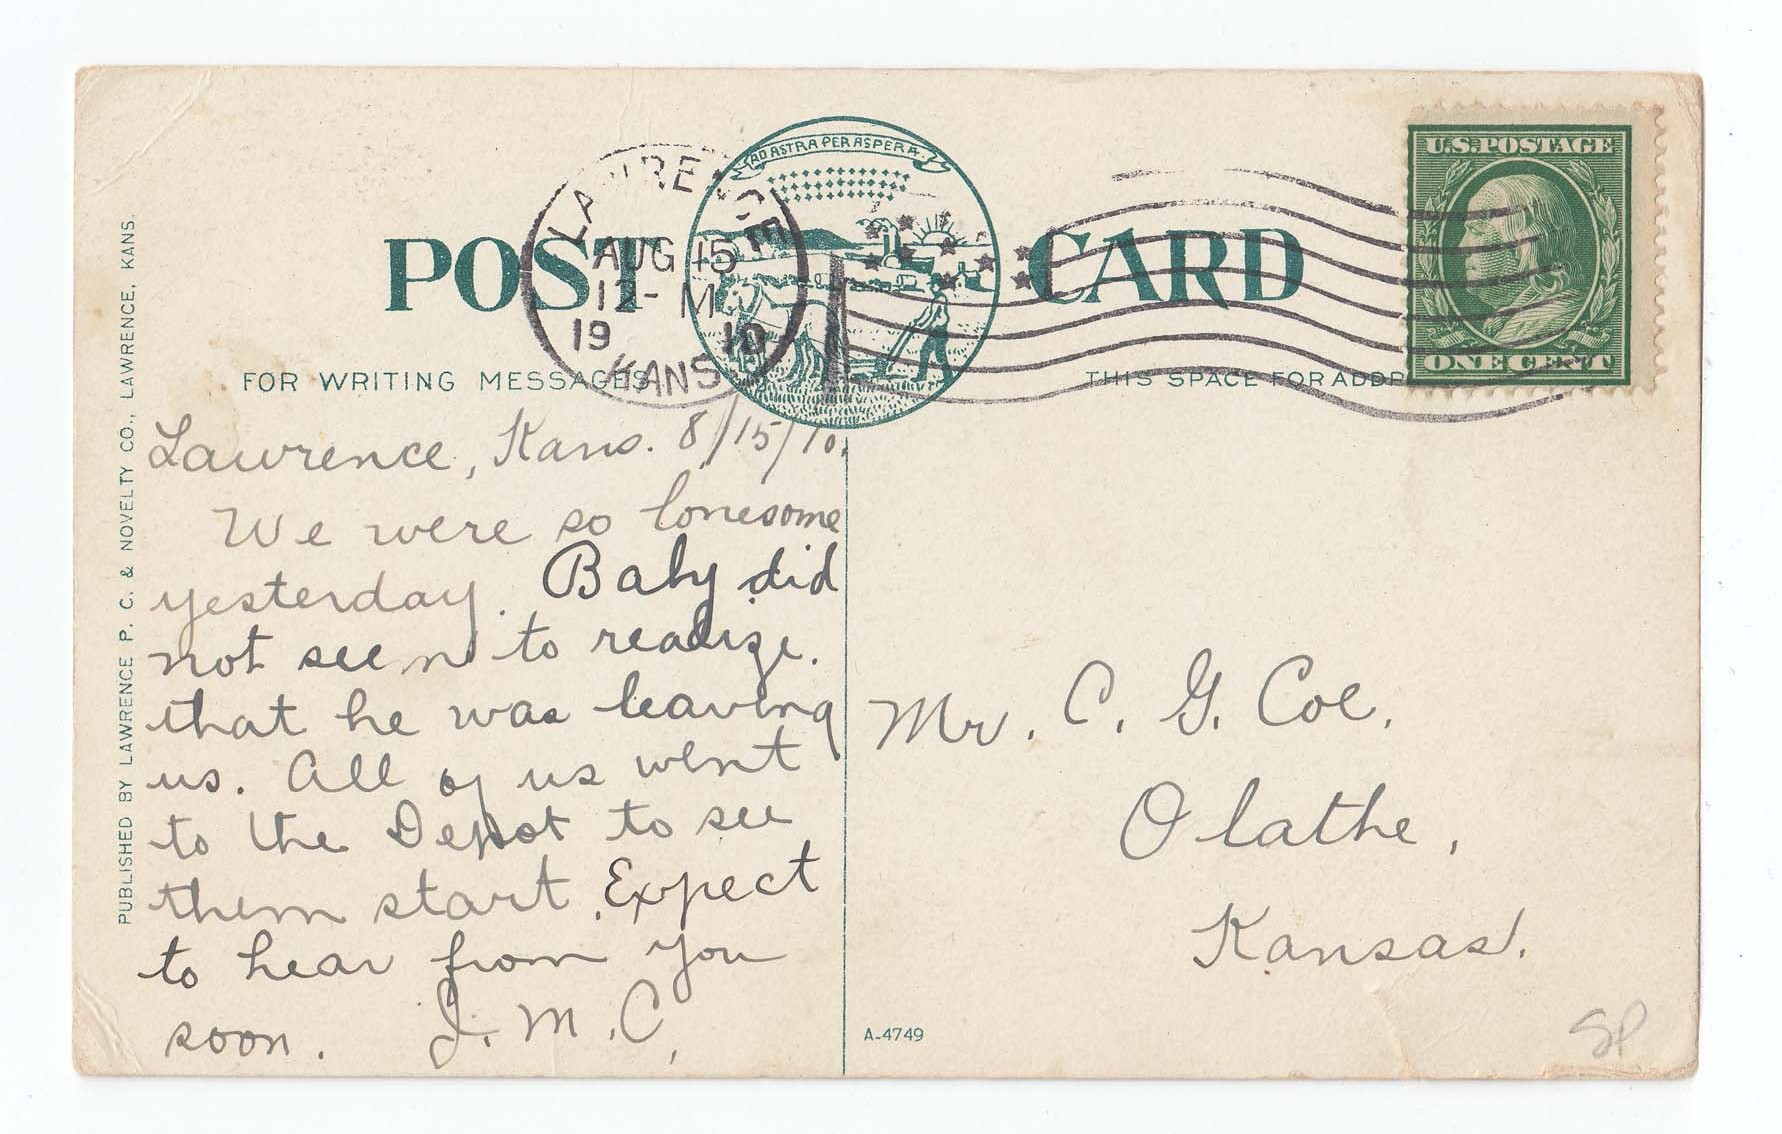 AD ASTRA PER ASPERA
POST CARD
LAWRENCE
AUG 15
12- M
19 10
KANS
U.S. POSTAGE
ONE CENT
FOR WRITING MESSAGES
THIS SPACE FOR ADDR
PUBLISHED BY LAWRENCE P. C. & NOVELTY CO., LAWRENCE, KANS.
Lawrence, Kans. 8/15/10.
We were so lonesome
yesterday. Baby did
not seem to realize.
that he was leaving
us. All of us went
to the Depot to see
them start. Expect
to hear from you
soon. J. M. C.
Mr. C. G. Coe,
Olathe,
Kansas.
A-4749